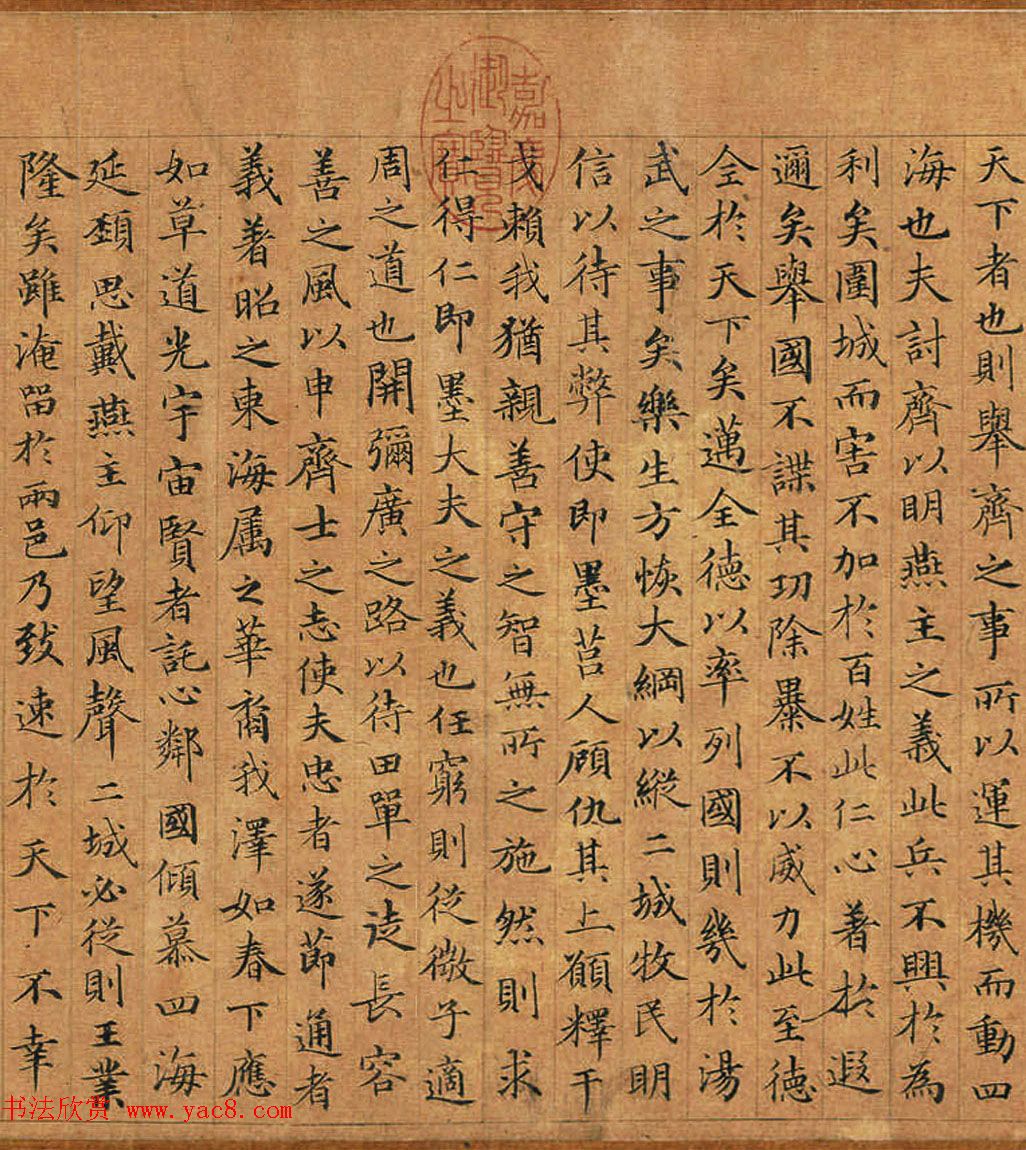 嘉慶御覽之寶
天下者也則舉齊之事所以運其機而動四
海也夫討齊以明燕主之義此兵不興於為
利矣圍城而害不加於百姓此仁心著於遐
邇矣舉國不謀其功除暴不以威力此至德
全於天下矣邁全德以率列國則幾於湯
武之事矣樂生方恢大綱以縱二城牧民明
信以待其弊使即墨莒人顧仇其上願釋干
戈賴我猶親善守之智無所之施然則求
仁得仁即墨大夫之義也任窮則從微子適
周之道也開彌廣之路以待田單之徒長容
善之風以申齊士之志使夫忠者遂節通者
義著昭之東海属之華裔我澤如春下應
如草道光宇宙賢者託心鄰國傾慕四海
延頸思戴燕主仰望風聲二城必從則王業
隆矣雖淹留於兩邑乃致速於天下不幸
书法欣赏 www.yac8.com